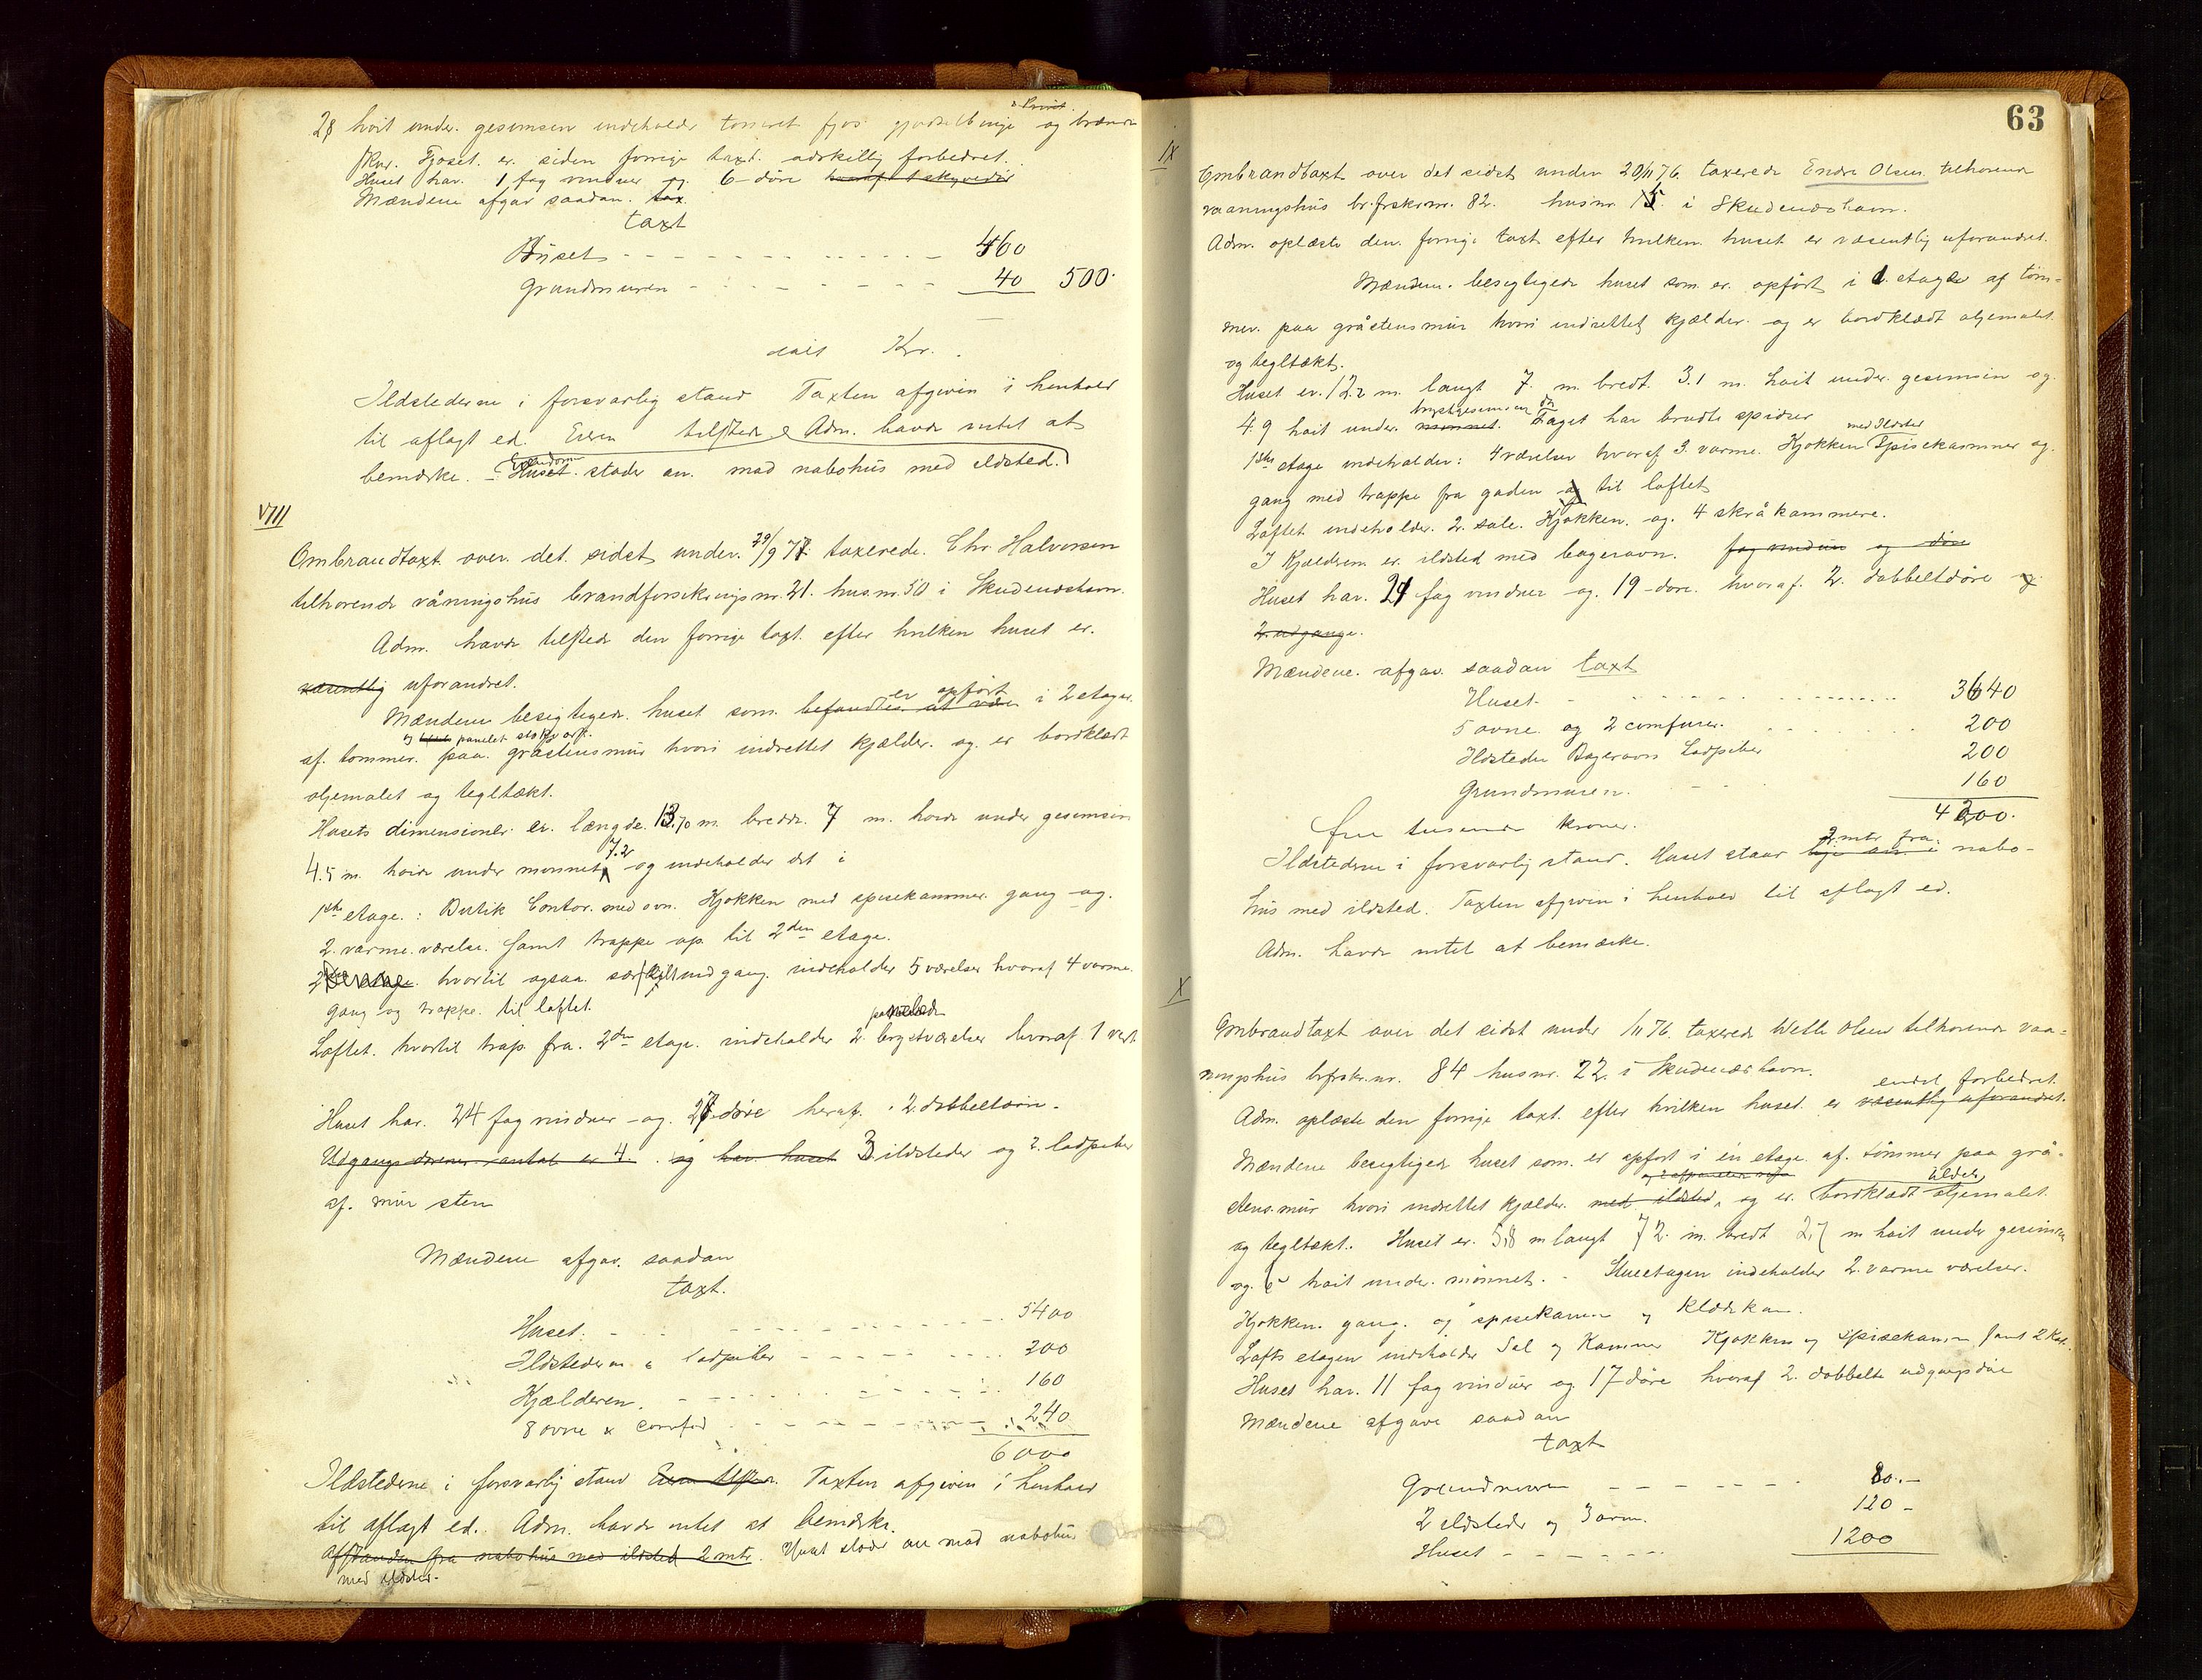 2,8 høit under gesimsen indeholder torveret fjøs og brænde
skur. Fjøset er siden forrige taxt adskillig forbedret.
Huset har 1 fag vinduer og 6 døre hvoraf 1 skyvedør
Mændene afgav saadan tax
taxt
Huset 460
Grundmuren 40 500
Kr.
Ildstederne i forsvarlig stand Taxten afgiven i henhold
til aflagt ed. Eieren tilstede & Adm. havde intet at
bemærke. Huset støder an mod nabohus med ildsted.
VIII
Ombrandtaxt over det sidst under 29/9 77 taxerede Chr Halvorsen
tilhørende våningshus brandforsikringsnr. 21. hus nr. 50 i Skudeneshavn.
Adm. havde tilstede den forrige taxt efter hvilken huset er
væsentlig uforandret.
er opført
Mændene besigtigede huset som befandtes at være i 2 etager
og panelet stokværk
af tømmer paa gråstensmur hvori indrettet kjælder og er bordklædt
oljemalet og tegltækt.
Husets dimensioner er længde 13.70 m. bredde 7 m. høide under gesimsen
7.2
4.5 m. høide under mønnet og indeholder det i
1ste etage: Butik Contor med ovn. Kjøkken med spisekammer gang og
2 varme værelse samt trappe op til 2den etage.
2den etage hvortil ogsaa særskilt indgang indeholder 5 værelser hvoraf 4 varme
gang og trappe til loftet.
Loftet hvortil trap fra 2den etage indeholder 2 brystværelser hvoraf 1 varmt
Huset har 24 fag vinduer og 27 døre heraf 2 dobbeltdøre.
Udgangsdørenes antal er 4. og har huset 3 ildsteder og 2 ladpiber
af mur sten
Mændene afgav saadan
taxt.
Huset 5400
Ildstederne & ladpiber 200
Kjælderen 160
8 ovne & comfur 240
6000
Ildstederne i forsvarlig stand Eieren tilstede. Taxten afgiven i henhold
til aflagt ed. Adm. havde intet at bemærke.
Afstanden fra nabohus med ildsted 2 mtr. Huset støder an mod nabohus
med ildsted.
63
IX
Ombrandtaxt over det sidst under 20/11 76 taxerede Endre Olsen tilhørende
vaaningshus br.frskr.nr. 82. husnr. 15 i Skudeneshavn.
Adm. oplæste den forrige taxt efter hvilken huset er væsentlig uforandret.
Mændene besigtigede huset som er opført i 1 etage af tøm-
mer paa gråstensmur hvori indrettet kjælder og er bordklædt oljemalet
og tegltækt.
Huset er 12.2 m. langt 7. m. bredt 3.1 m. høit under gesimsen og
brystgesimsen
4.9 høit under mønnet. Taget har brudte spidser
med Ildsted
1ste etage indeholder: 4 værelser hvoraf 3 varme. Kjøkken Spisekammer og
gang med trappe fra gaden og til loftet
Loftet indeholder 2 sale. Kjøkken og 4 skråkammere.
I Kjælderen er ildsted med bagerovn. fag vinduer og døre
Huset har 21 fag vinduer og 19 døre hvoraf 2 dobbeltdøre og
2 udgange.
Mændene afgav saadan taxt
Huset 3640
5 ovne og 2 comfurer 200
Ildsteder Bagerovn Ladpiber 200
Grundmuren 160
4200.
fire tusende kroner.
2 mtr fra
Ildstederne i forsvarlig stand. Huset staar nabo-
hus med ildsted. Taxten afgiven i henhold til aflagt ed.
Adm. havde intet at bemærke.
X
Ombrandtaxt over det sidst under 1/11 76 taxerede Olsen tilhørende vaa-
ningshus brfrskr.nr. 84 husnr. 22 i Skudeneshavn.
endel forbedret
Adm. oplæste den forrige taxt efter hvilken huset er væsentlig uforandret.
Mændene besigtigede huset som er opført i en etage af tømmer paa grå-
stensmur hvori indrettet kjælder med ildsted, og er bordklædt oljemalet
og tegltækt. Huset er 5,8 m langt 7 2 m. bredt 2,7 m høit under gesimsen
og 6 høit under mønnet. Stueetagen indeholder 2 varme værelser.
Kjøkken gang og spisekammer og Klædekam.
Lofts etagen indeholder Sal og Kammer Kjøkken og spisekammer samt 2 Kot.
Huset har 11 fag vinduer og 17 døre hvoraf 2 dobbelte udgangsdøre
Mændene afgave saadan
taxt
Grundmuren 80.-
2 ildsteder og 3 ovne 120 -
Huset 1200